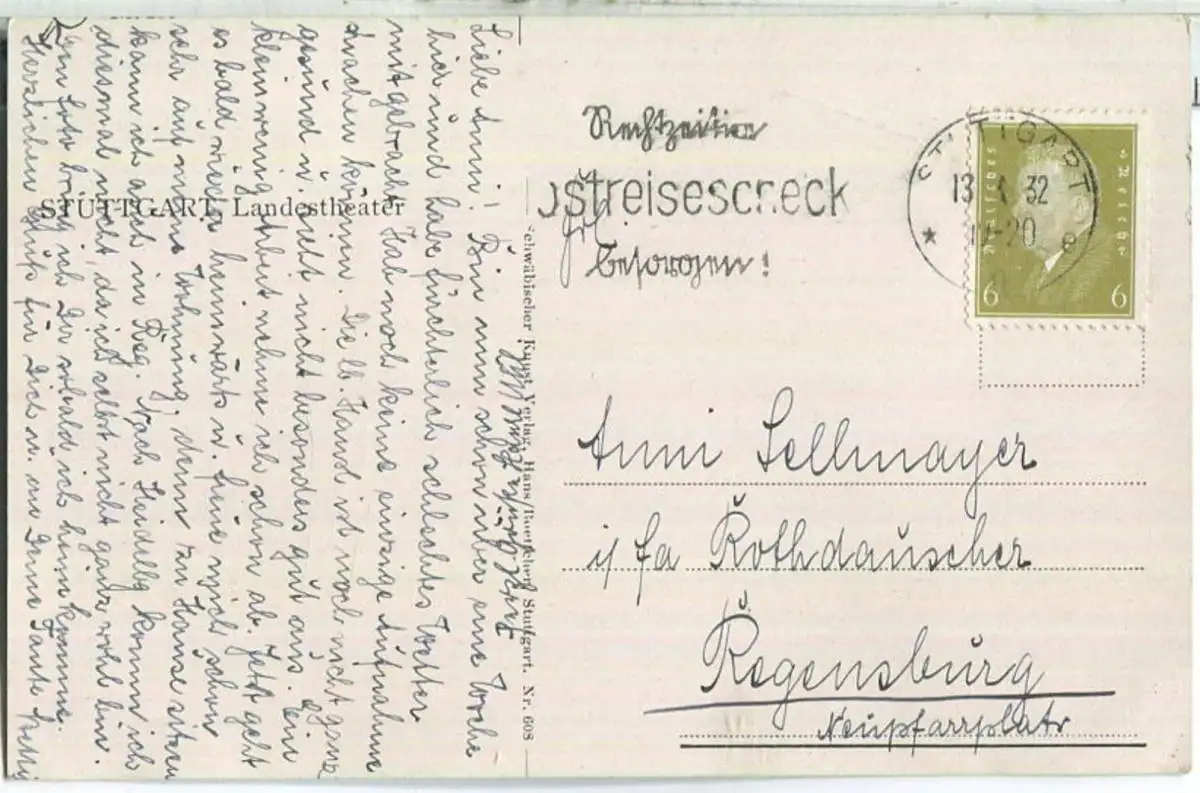 STUTTGART, Landestheater
Liebe Anni! Bin nun schon über eine Woche
hier und habe fürchterlich schlechtes Wetter
mitgebracht. Hab noch keine einzige Aufnahme
machen können. Die lb. Hansl ist noch nicht ganz
gesund u. sieht nicht besonders gut aus. Eine
klein wenig Arbeit nehm ich schon ab. Jetzt geht
es bald wieder heimwärts u. freue mich schon
sehr auf meine Wohnung, denn zu Hause sitzen
kann ich auch in Reg. Nach Heidelbg komm ich
diesmal nicht, da ich selbst nicht ganz wohl bin.
Foto bring ich Dir sobald ich heim komme.
Herzlichen Gruß für Dich u. von Deine Tante
Schwäbischer Kunst-Verlag, Hans Stuttgart. Nr. 608
Rechtzeitig
Postreisescheck
besorgen!
STUTTGART
13 32
-20
e
Deutsches Reich
6 6
Anni Sellmayer
i/fa Rothdauscher
Regensburg
Neupfarrplatz